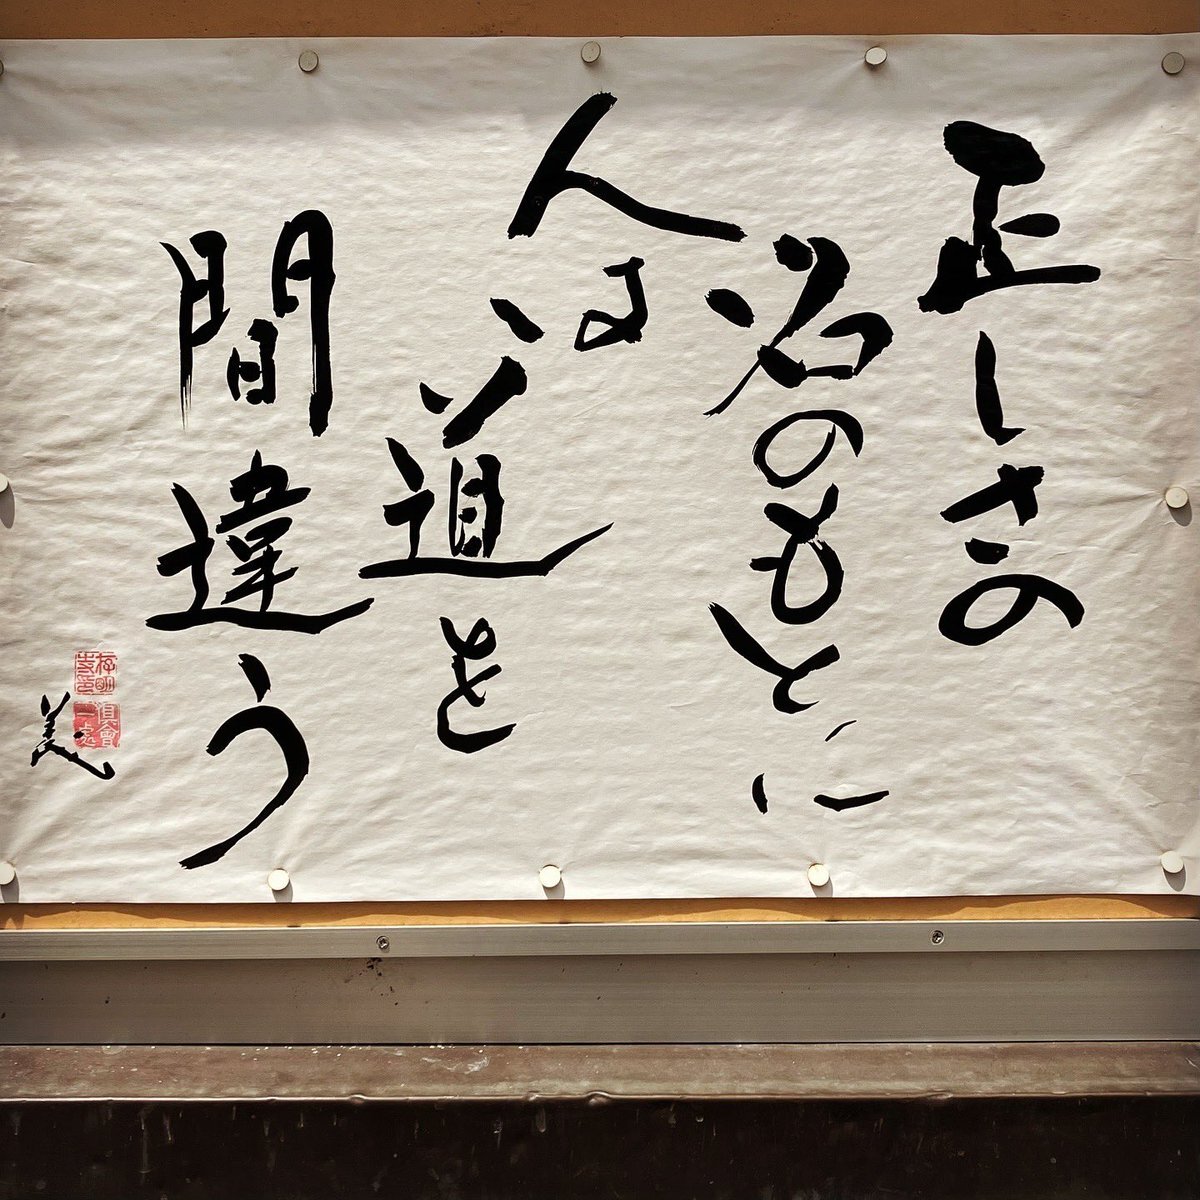 正しさの
名のもとに
人は
道を
間違う
倶會
一處